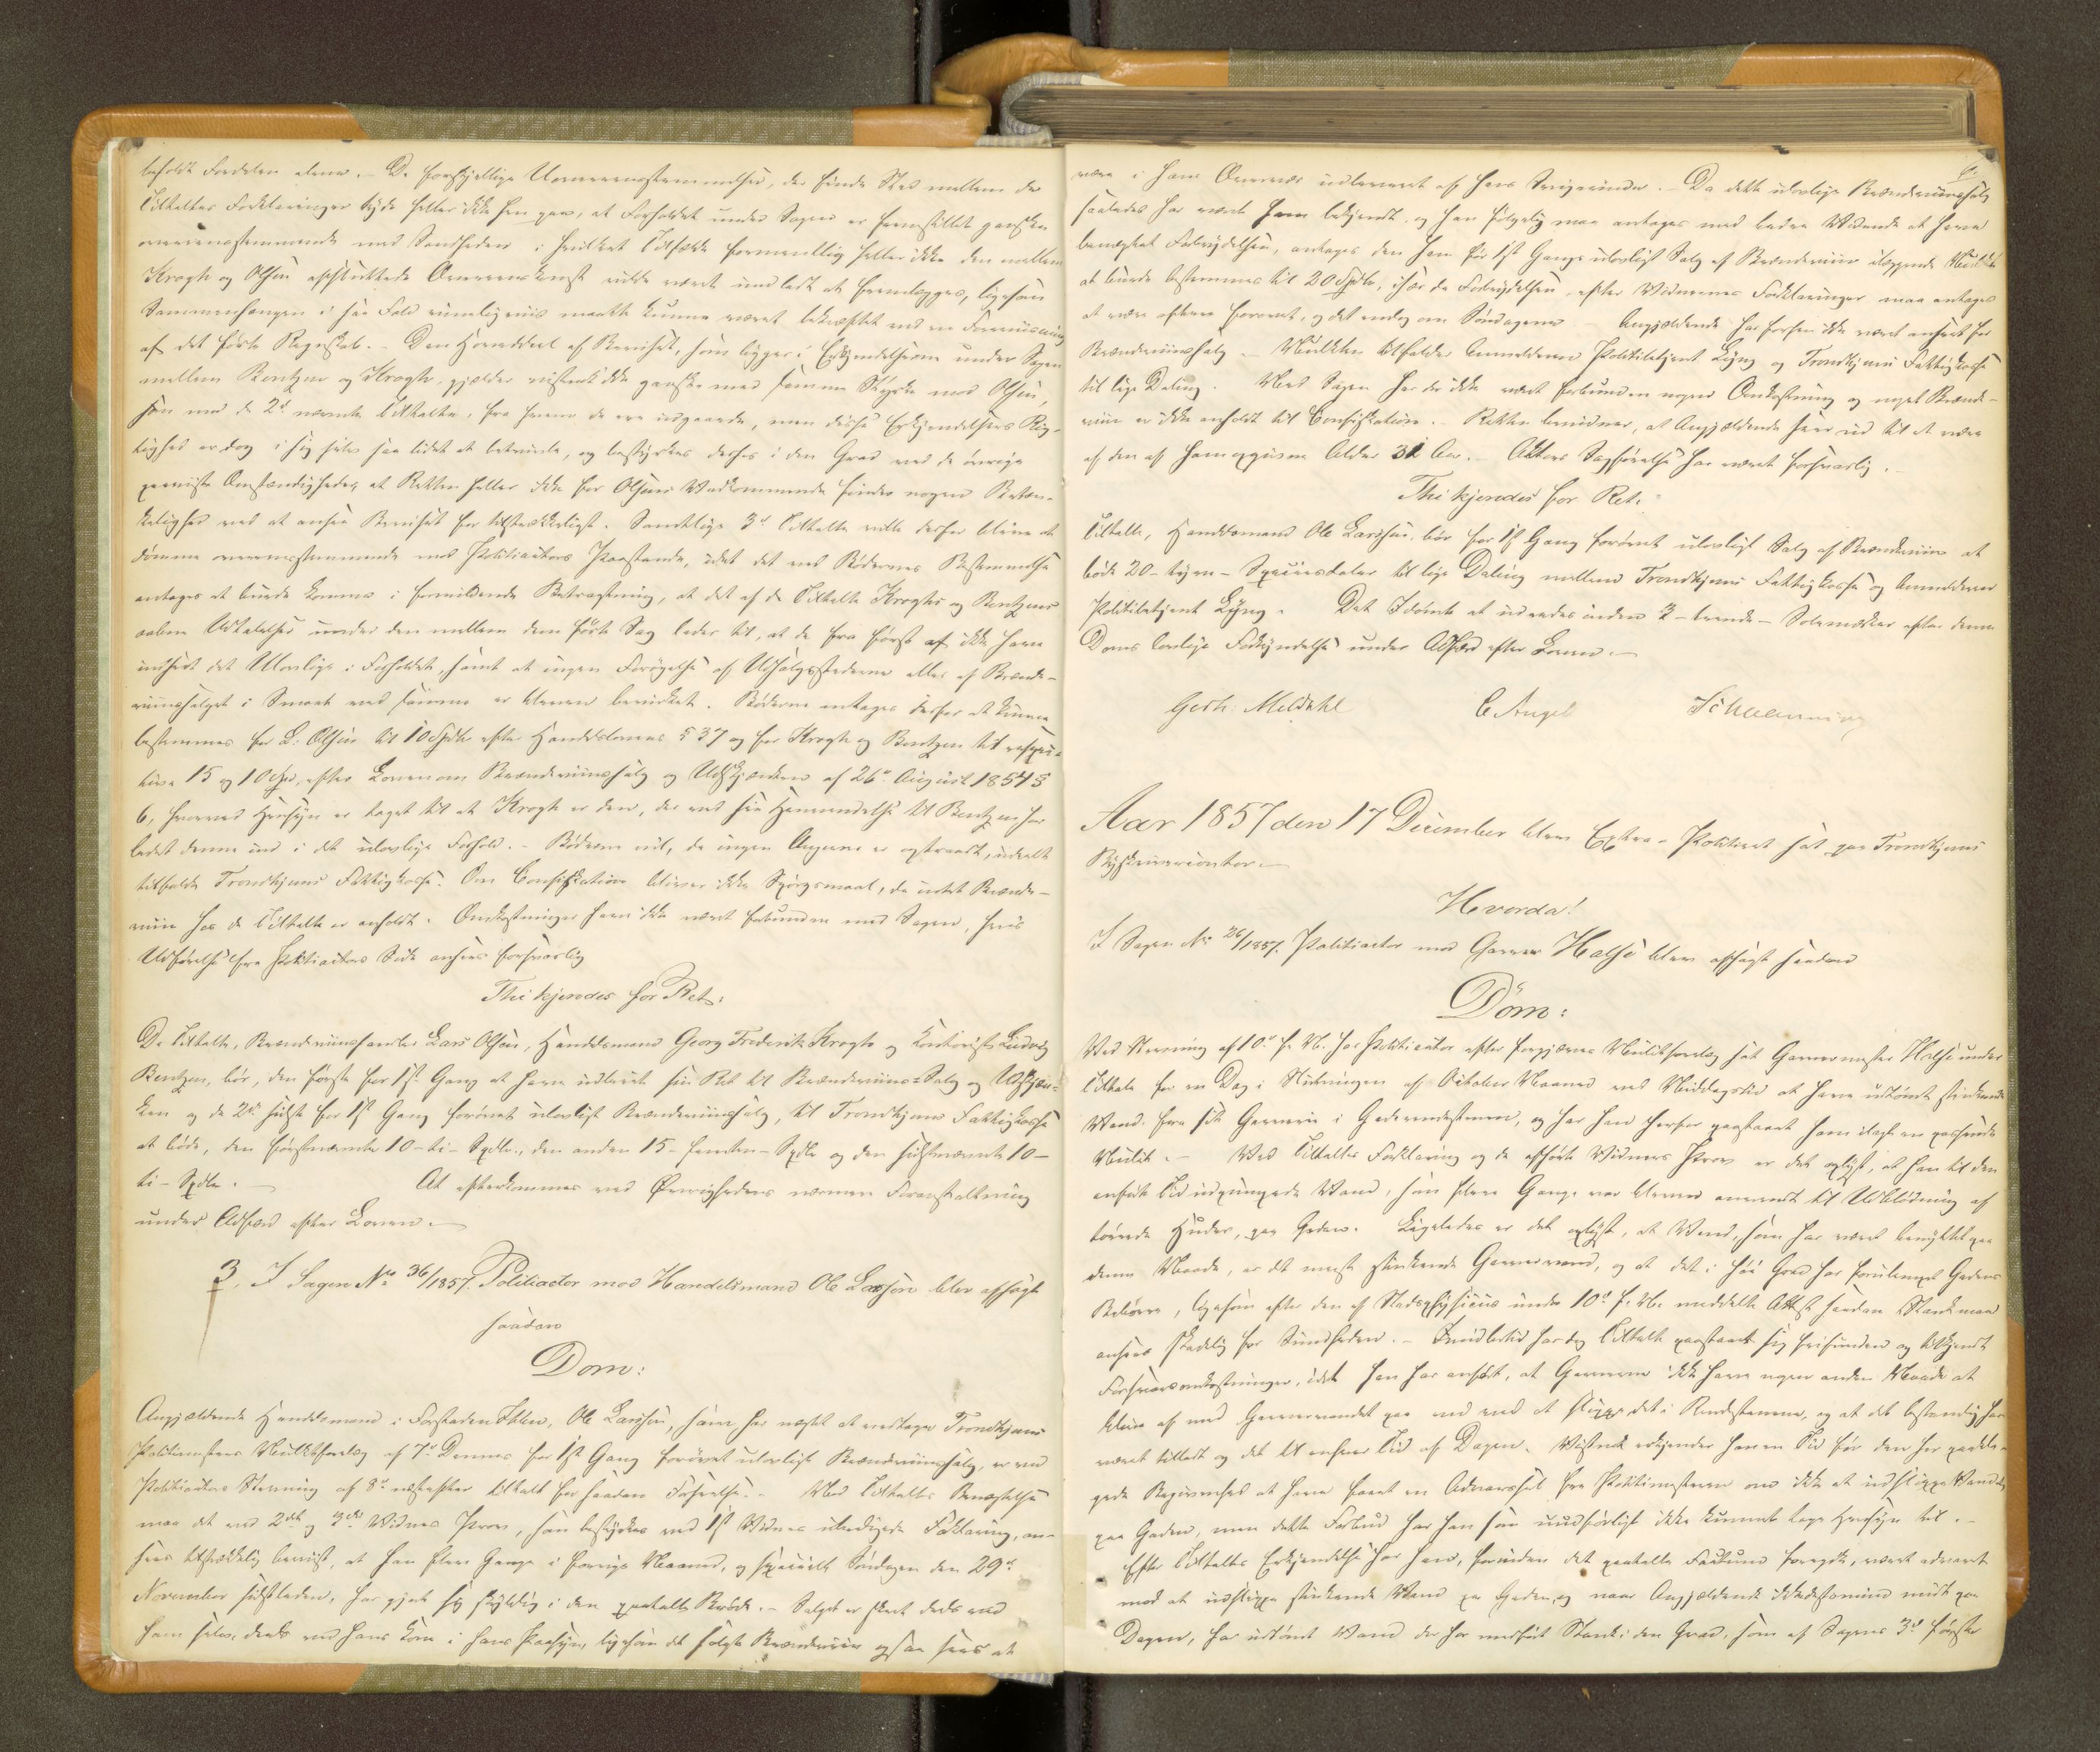 beholdt Fordelen alene. – De forskjellige Uoverensstemmelser, der finde Sted mellem de
Tiltaltes Forklaringer tyde heller ikke hen paa, at Forholdet under Sagen er fremstillet ganske
overensstemmende med Sandheden i hvilket Tilfælde formentlig heller ikke den mellem
Krogh og Olsen afsluttede Overenskomst vilde været undladt at fremlægges, ligesom
Sammenhængen i saa Fald rimeligviis maatte kunne været bekræftet ved en Foreviisning
af det førte Regnskab. – Den Hoveddeel af Beviset, som ligger i Erkjendelserne under Sagen
mellem Bentzen og Krogh, gjælder vistnok ikke ganske med samme Styrke mod Olsen,
som mod de 2de nævnte Tiltalte, fra hvem de ere udgaaede, men disse Erkjendelsers Rig-
tighed er dog i sig selv saa lidet at betvivle, og bestyrkes derhos i den Grad ved de øvrige
beviste Omstændigheder, at Retten heller ikke for Olsens Vedkommende finder nogen Betæn-
kelighed ved at ansee Beviset for tilstrækkeligt. Samtlige 3de Tiltalte ville derfor blive at
dømme overensstemmende med Politiactors Paastande, idet det ved Bødernes Bestemmelse
antages at burde komme i formildende Betragtning, at det af de Tiltalte Kroghs og Bentzens
aabne Udtalelser under den mellem dem førte Sag leder til, at de fra først af ikke have
indseet det Ulovlige i Forholdet, samt at ingen Forøgelse af Udsalgsstederne eller af Brænde-
viinssalget i Smaat ved samme er bleven bevirket. Bøderne antages derfor at kunne
bestemmes for L. Olsen til 10 Spdlr efter Handelslovens § 37 og for Krogh og Bentzen til respec-
tive 15 og 10 Spd, efter Loven om Brændeviinssalg og Udskjænken af 26de August 1854 §
6, hvorved Hensyn er taget til at Krogh er den, der ved sin Henvendelse til Bentzen har
ledet denne ind i det ulovlige Forhold. – Bøderne vil, da ingen Angiver er optraadt, udeelt
tilfalde Trondhjems Fattigkasse. Om Confiskation bliver ikke Spørgsmaal, da intet Brænde-
viin hos de Tiltalte er anholdt. Omkostninger have ikke været forbunden med Sagen, hvis
Udførelse fra Politiactors Side ansees forsvarlig
Thi kjendes for Ret:
De Tiltalte, Brændeviinshandler Lars Olsen, Handelsmand Georg Frederik Krogh og Kontorist Ludvig
Bentzen, bør, den første for 1ste Gang at have udleiet sin Ret til Brændeviins-Salg og Udskjæn-
ken og de 2de sidste for 1ste Gang forøvet ulovligt Brændeviinssalg, til Trondhjems Fattigkasse
at bøde, den førstnævnte 10 – ti – Spdlr., den anden 15 – femten – Spdlr og den sidstnævnte 10 –
ti – Spdlr. – At efterkommes ved Øvrighedens nærmere Foranstaltning
under Adfærd efter Loven. –
3. I Sagen No 36/1857. Politiactor mod Handelsmand Ole Larsen blev afsagt
saadan
Dom:
Angjældende Handelsmand i Forstaden Ihlen, Ole Larssen, som har nægtet at vedtage Trondhjems
Politimesters Mulktforelæg af 7de Dennes for 1ste Gang forøvet ulovligt Brændeviinssalg, er ved
Politiactors Stevning af 8de næstefter tiltalt for saadan Forseelse. – Mod Tiltaltes Benægtelse
maa det ved 2det og 3die Vidnes Prov, som bestyrkes ved 1ste Vidnes ubeedigede Forklaring, an-
sees tilstrækkelig beviist, at han flere Gange i forrige Maaned, og specielt Søndagen den 29de
November sidstleden, har gjort sig skyldig i den paatalte Brøde. – Salget er skeet deels ved
ham selv, deels ved hans Kone i hans Paasyn, ligesom det solgte Brændeviin ogsaa sees at
6.
være i hans Nærværelse udleveret af hans Svigerinde. – Da dette ulovlige Brændeviinssalg
saaledes har været ham bekjendt, og han følgelig maa antages mod bedre Vidende at have
benægtet Forbrydelsen, antages den ham for 1ste Gangs ulovligt Salg af Brændeviin ilæggende Mulkt
at burde bestemmes til 20 Spdlr, især da Forbrydelsen, efter Vidnernes Forklaringer maa antages
at være oftere forøvet, og det endog om Søndagene. – Angjældende har forhen ikke været anseet for
Brændeviinssalg. – Mulkten tilfalder Anmelderen Politibetjent Lyng og Trondhjems Fattigkasse
til lige Deling. Med Sagen har der ikke været forbunden nogen Omkostning og noget Brænde-
viin er ikke anholdt til Confiskation. – Retten bevidner, at Angjældende seer ud til at være
af den af ham opgivne Alder 31 Aar. – Aktors Sagførelse har været forsvarlig. –
Thi kjendes for Ret:
Tiltalte, Handelsmand Ole Larssen, bør for 1ste Gang forøvet ulovligt Salg af Brændeviin at
bøde 20 – tyve – Speciesdaler til lige Deling mellem Trondhjems Fattigkasse og Anmelderen
Politibetjent Lyng. Det Idømte at udredes inden 3 – trende – Solemærker efter denne
Doms lovlige Forkyndelse under Adfærd efter Loven. –
Gerh. Meldahl C Angel Schwenning
Aar 1857 den 17 December blev Extra-Politiret sat paa Trondhjems
Byskrivercontor. –
Hvorda!
I Sagen No 26/1857. Politiactor mod Garver Halse blev afsagt saadan
Dom:
Ved Stevning af 10de f. M. har Politiactor efter foregaaende Mulktforelæg sat Garvermester Halse under
Tiltale for en Dag i Slutningen af October Maaned ved Middagstid at have udtømt stinkende
Vand fra sit Garveri i Gaderendestenen, og har han herfor paastaaet ham ilagt en passende
Mulkt. – Ved Tiltaltes Forklaring og de afhørte Vidners Prov er det oplyst, at han til den
anførte Tid udpumpede Vand, som flere Gange var bleven anvendt til Udblødning af
tørrede Huder, paa Gaden. Ligeledes er det oplyst, at Vand, som har været benyttet paa
denne Maade, er det meest stinkende Garvervand, og at det i høi Grad har forulempet Gadens
Beboere, ligesom efter den af Stadsphysicus under 10de f. M. meddelte Attest saadan Stank maa
ansees skadelig for Sundheden. – Imidlertid har dog Tiltalte paastaaet sig frifunden og tilkjendt
Forsvarsomkostninger, idet han har anført, at Garverne ikke have nogen anden Maade at
blive af med Garvervandet paa end ved at slippe det i Rendestenen, og at det bestandig har
været tilladt og det til enhver Tid af Dagen. Vistnok erkjender han en Tid før den her paakla-
gede Begivenhed at have faaet en Advarsel fra Politimesteren om ikke at udslippe Vandet
paa Gaden, men dette Forbud har han som uudførligt ikke kunnet tage Hensyn til. –
Efter Tiltaltes Erkjendelse har han, forinden det paatalte Factum foregik, været advaret
mod at udslippe stinkende Vand paa Gaden, og naar Angjældende ikkedestomind midt paa
Dagen, har udtømt Vand der har medført Stank i den Grad, som af Sagens 3de første